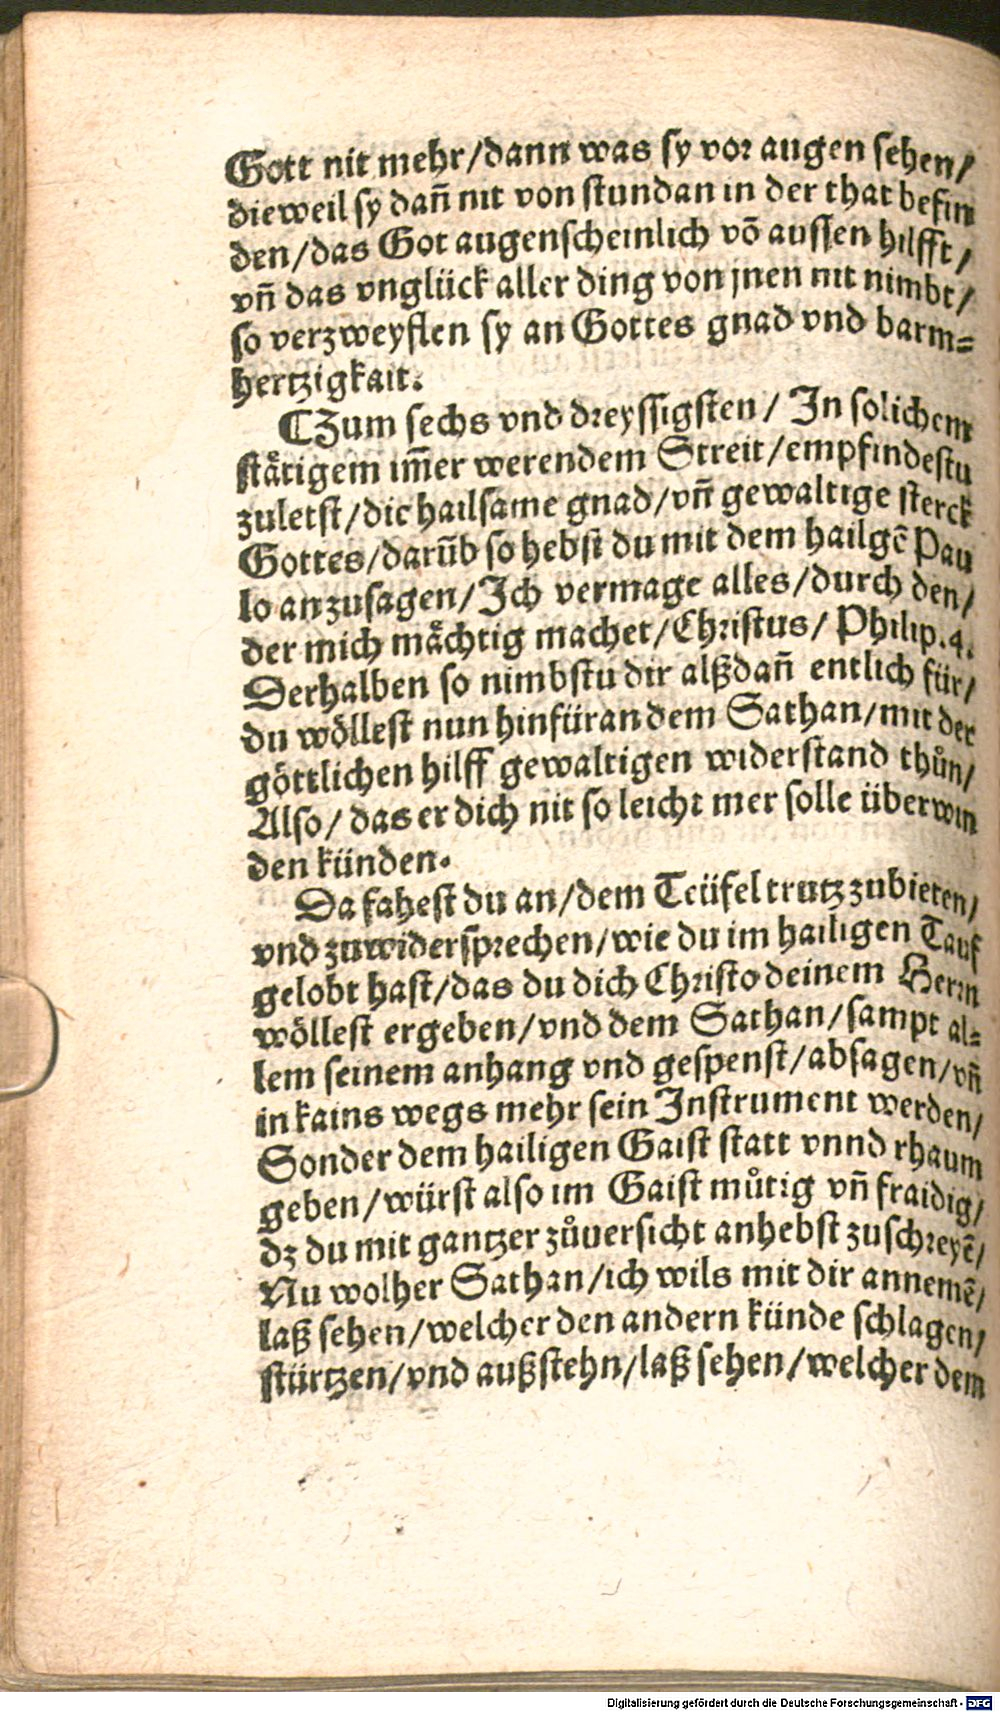 Gott nit mehr/dann was sy vor augen sehen/
dieweil sy dañ nit von stundan in der that befin
den/das Got augenscheinlich võ aussen hilfft/
vñ das vnglück aller ding von jnen nit nimbt/
so verzweyflen sy an Gottes gnad vnd barm⸗
hertzigkait.
¶Zum sechs vnd dreyssigsten/ In solichem
ståtigem im̃er werendem Streit/empfindestu
zuletst/die hailsame gnad/vñ gewaltige sterck
Gottes/darũb so hebst du mit dem hailgẽ Pau
lo anzusagen/Ich vermage alles/durch den/
der mich måchtig machet/Christus/ Philip.4.
Derhalben so nimbstu dir alßdañ entlich für/
du wöllest nun hinfüran dem Sathan/mit der
göttlichen hilff gewaltigen widerstand thůn/
Also/ das er dich nit so leicht mer solle überwin
den künden.
Da fahest du an/dem Teüfel trutz zubieten/
vnd zuwidersprechen/wie du im hailigen Tauf
gelobt hast/das du dich Christo deinem Herrn
wöllest ergeben/vnd dem Sathan/sampt al⸗
lem seinem anhang vnd gespenst/absagen/vñ
in kains wegs mehr sein Instrument werden/
Sonder dem hailigen Gaist statt vnnd rhaum
geben/würst also im Gaist můtig vñ fraidig/
dz du mit gantzer zůuersicht anhebst zuschreyẽ/
Nu wolher Sathan/ich wils mit dir annemẽ/
laß sehen/welcher den andern künde schlagen/
stürtzen/vnd außstehn/laß sehen/welcher dem
Digitalisierung gefördert durch die Deutsche Forschungsgemeinschaft - DFG